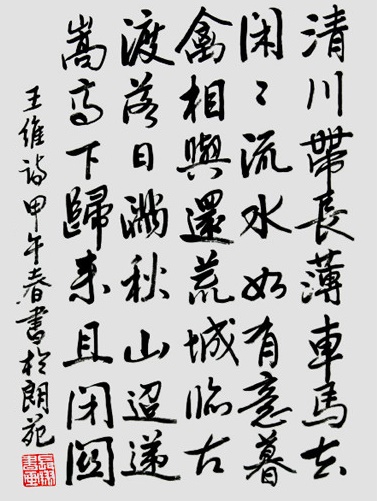 清川帶長薄車馬去
閑〻流水如有意暮
禽相與還荒城臨古
渡落日滿秋山迢遞
嵩高下歸來且閉關
王維詩甲午春書於朗苑